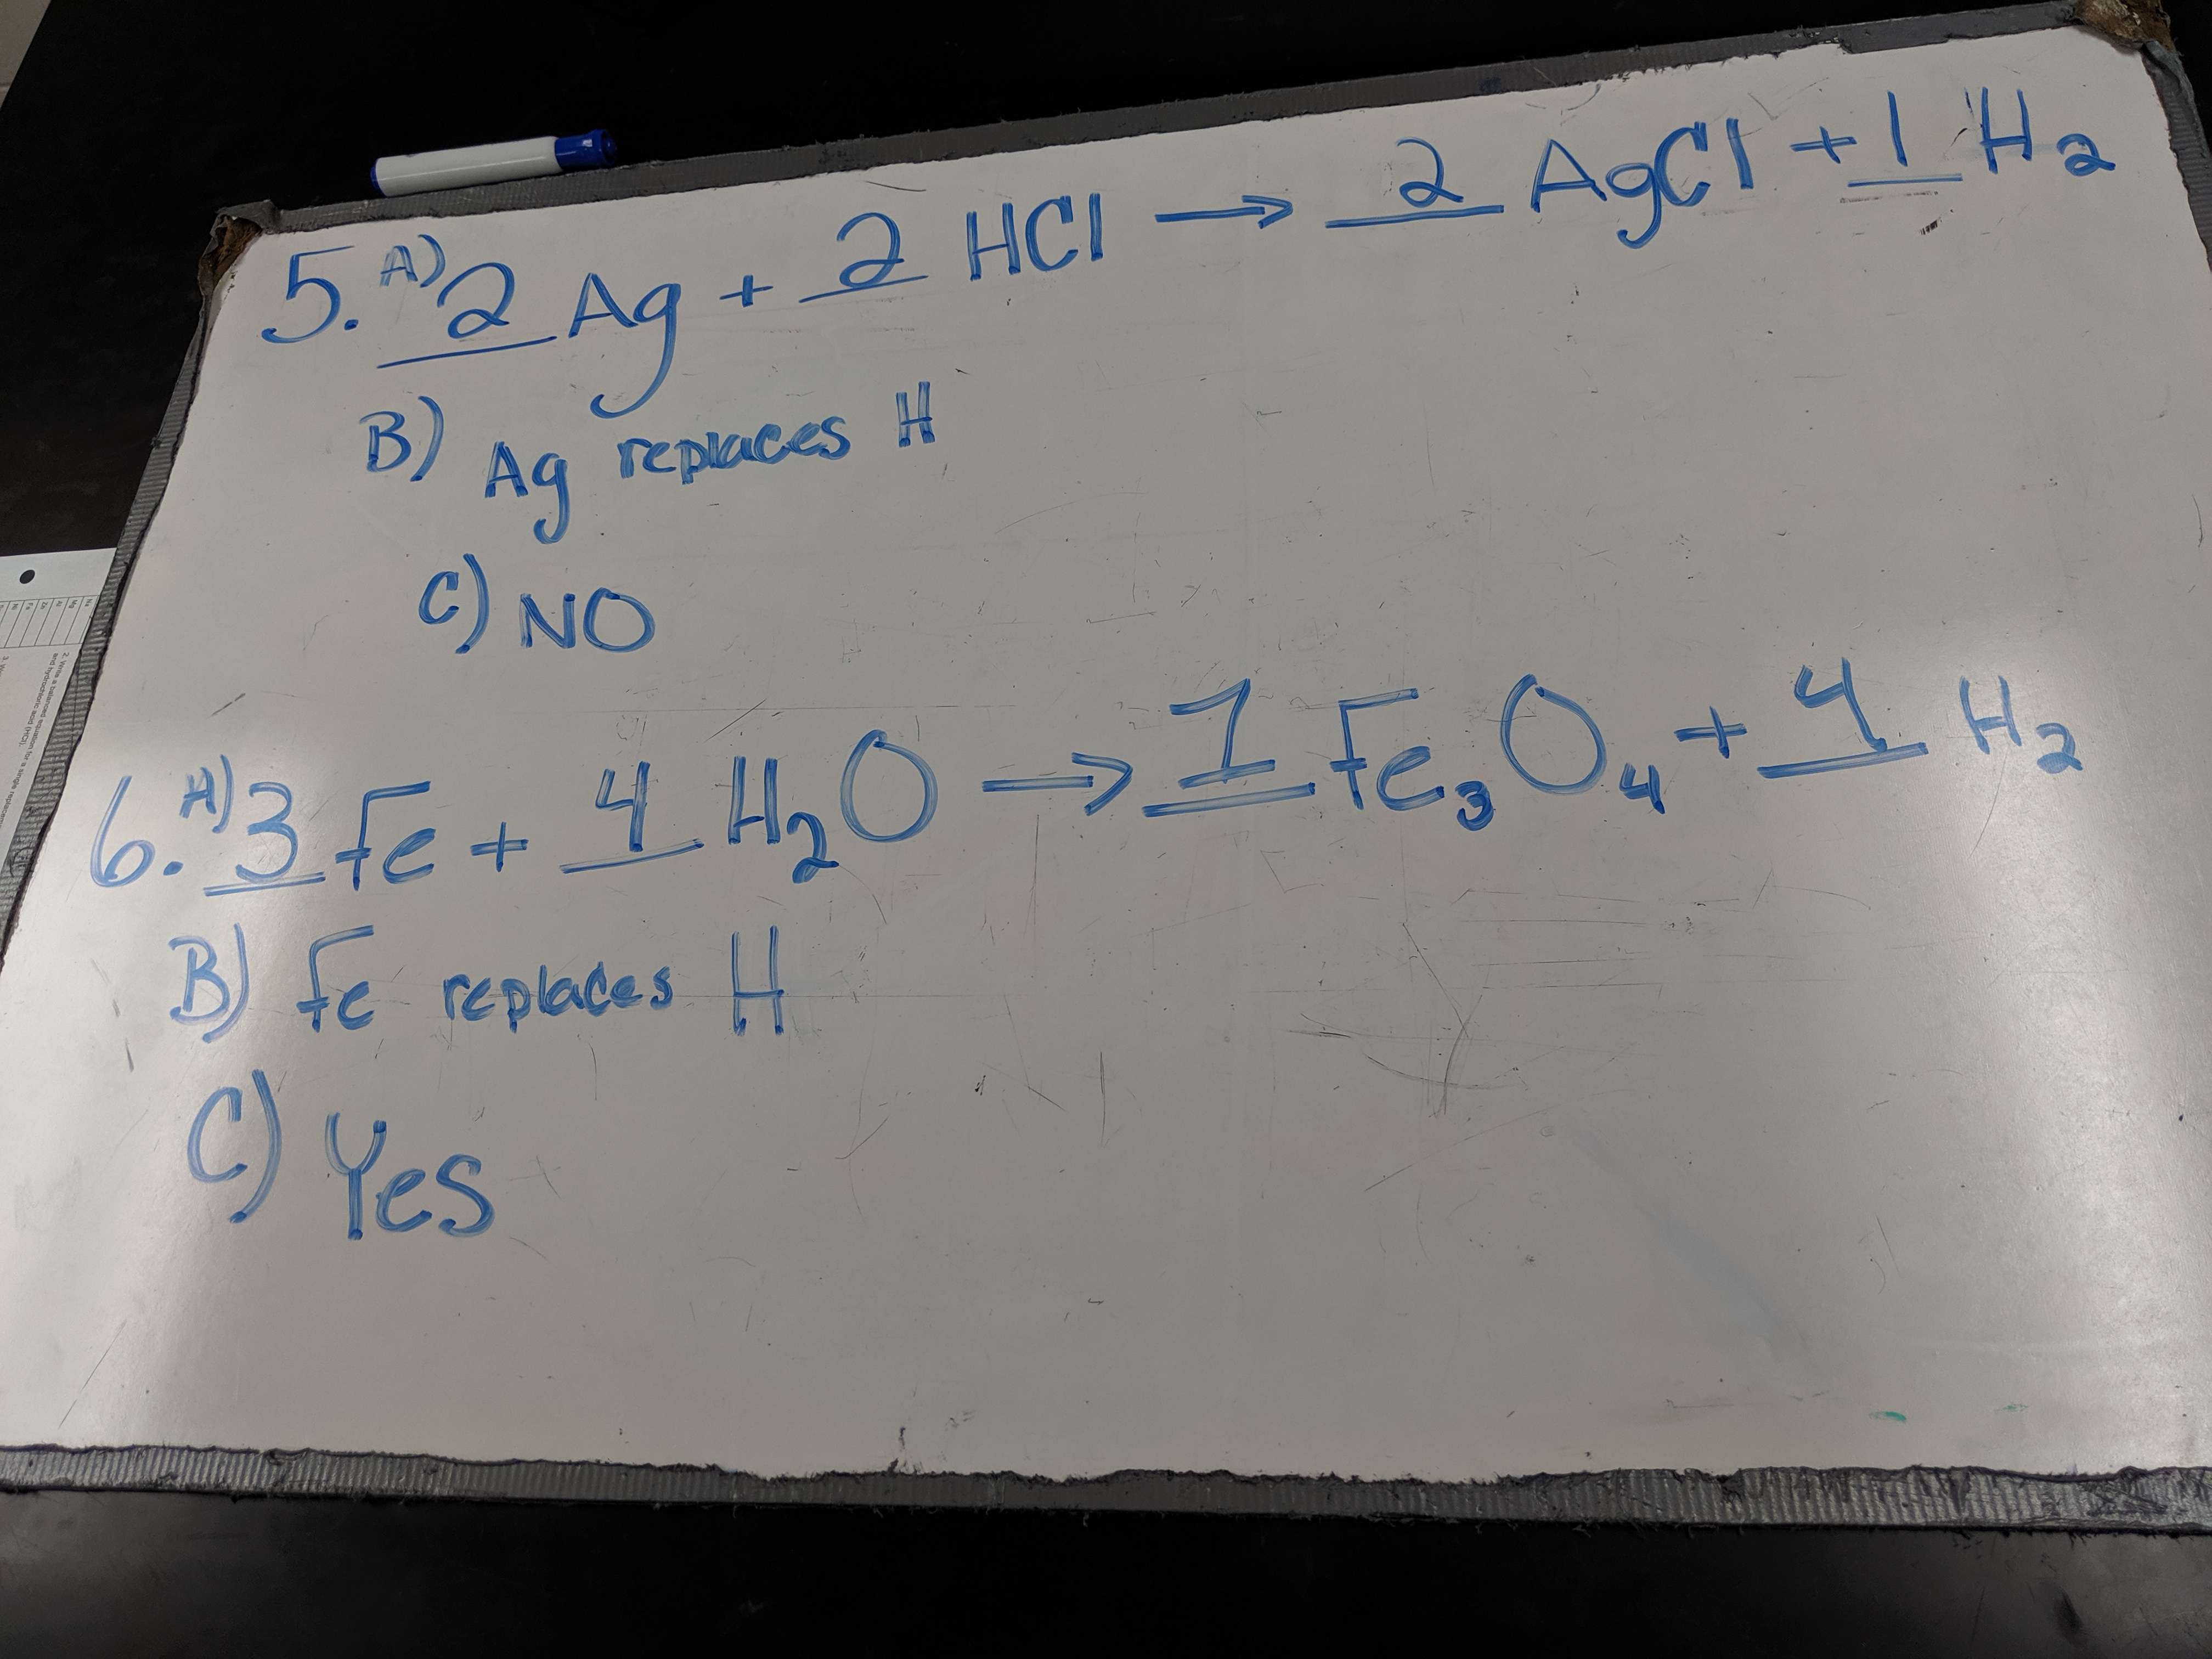 5. A) 2 Ag + 2 HCl → 2 AgCl + 1 H₂
B) Ag replaces H
C) NO
6. A) 3 Fe + 4 H₂O → 1 Fe₃O₄ + 4 H₂
B) Fe replaces H
C) Yes
2. Write a balanced equation for a single
and hydrochloric acid (HCl).